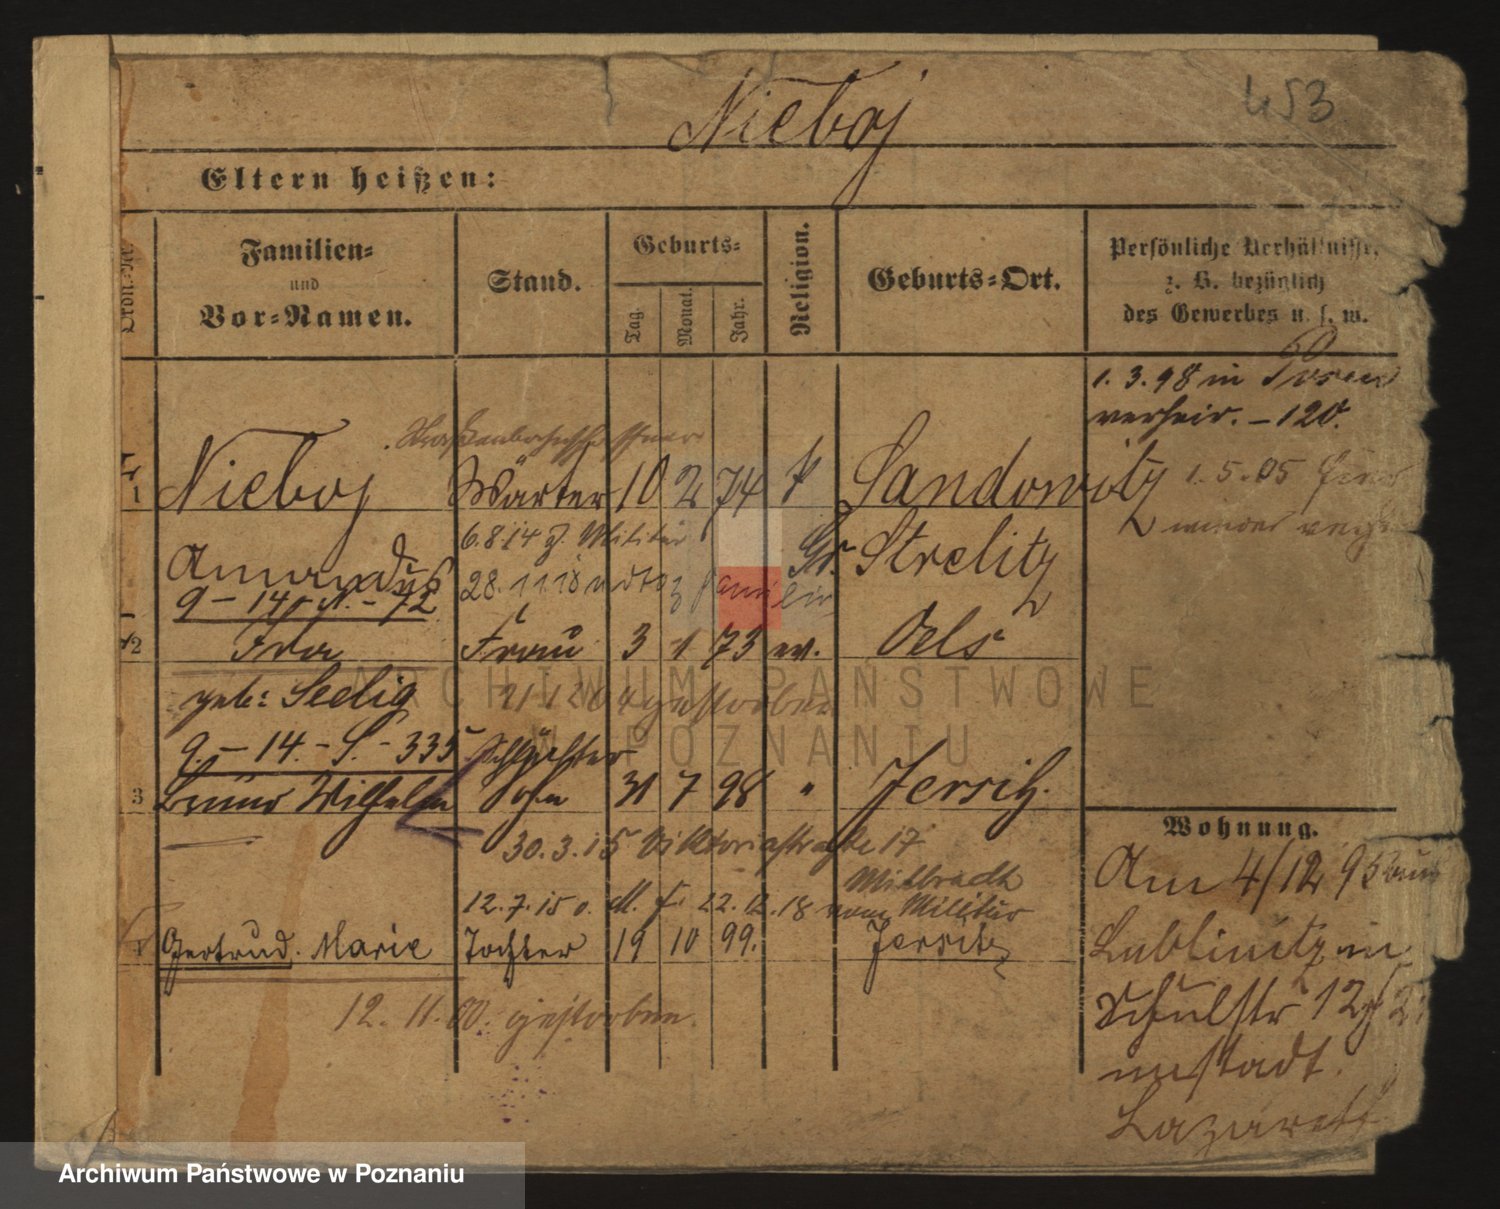 Nieboj
453
Eltern heißen:
Ordn.-Nr.
Familien-
und
Vor-Namen.
Stand.
Geburts-
Tag.
Monat.
Jahr.
Religion.
Geburts-Ort.
Persönliche Verhältnisse,
z. B. bezüglich
des Gewerbes u. s. w.
1. 3. 98 in Posen
verheir. - 120.
1 Nieboj Wärter 10 2 74 k Sandowitz
1. 5. 05
Amandus 6.8.14 z. Militär Gr. Strelitz
9 - 14 - N. - 72 28. 11. 18 Familie
2 Frau 3 1 73 ev. Oels
geb: Seelig gestorben
9. - 14. - S. - 335
3 Bruno Wilhelm Sohn 31 7 98 " Jersitz.
30. 3. 15 Viktoriastraße 17
12. 7. 15 22. 12. 18 vom Militär
4 Gertrud. Marie Tochter 19 10 99. Jersitz
12. 11. 00. gestorben.
Wohnung.
Am 4/12 95 aus
Lublinitz in
Schulstr 12
Lazarett
ARCHIWUM PAŃSTWOWE
W POZNANIU
Archiwum Państwowe w Poznaniu